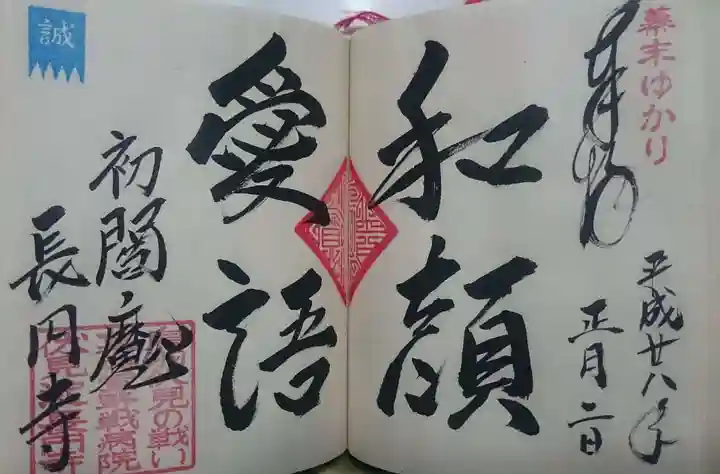 幕末ゆかり
奉拝
平成廿八年
正月二日
和顔
愛語
誠
初閻魔
長円寺
の戦い
戦病院